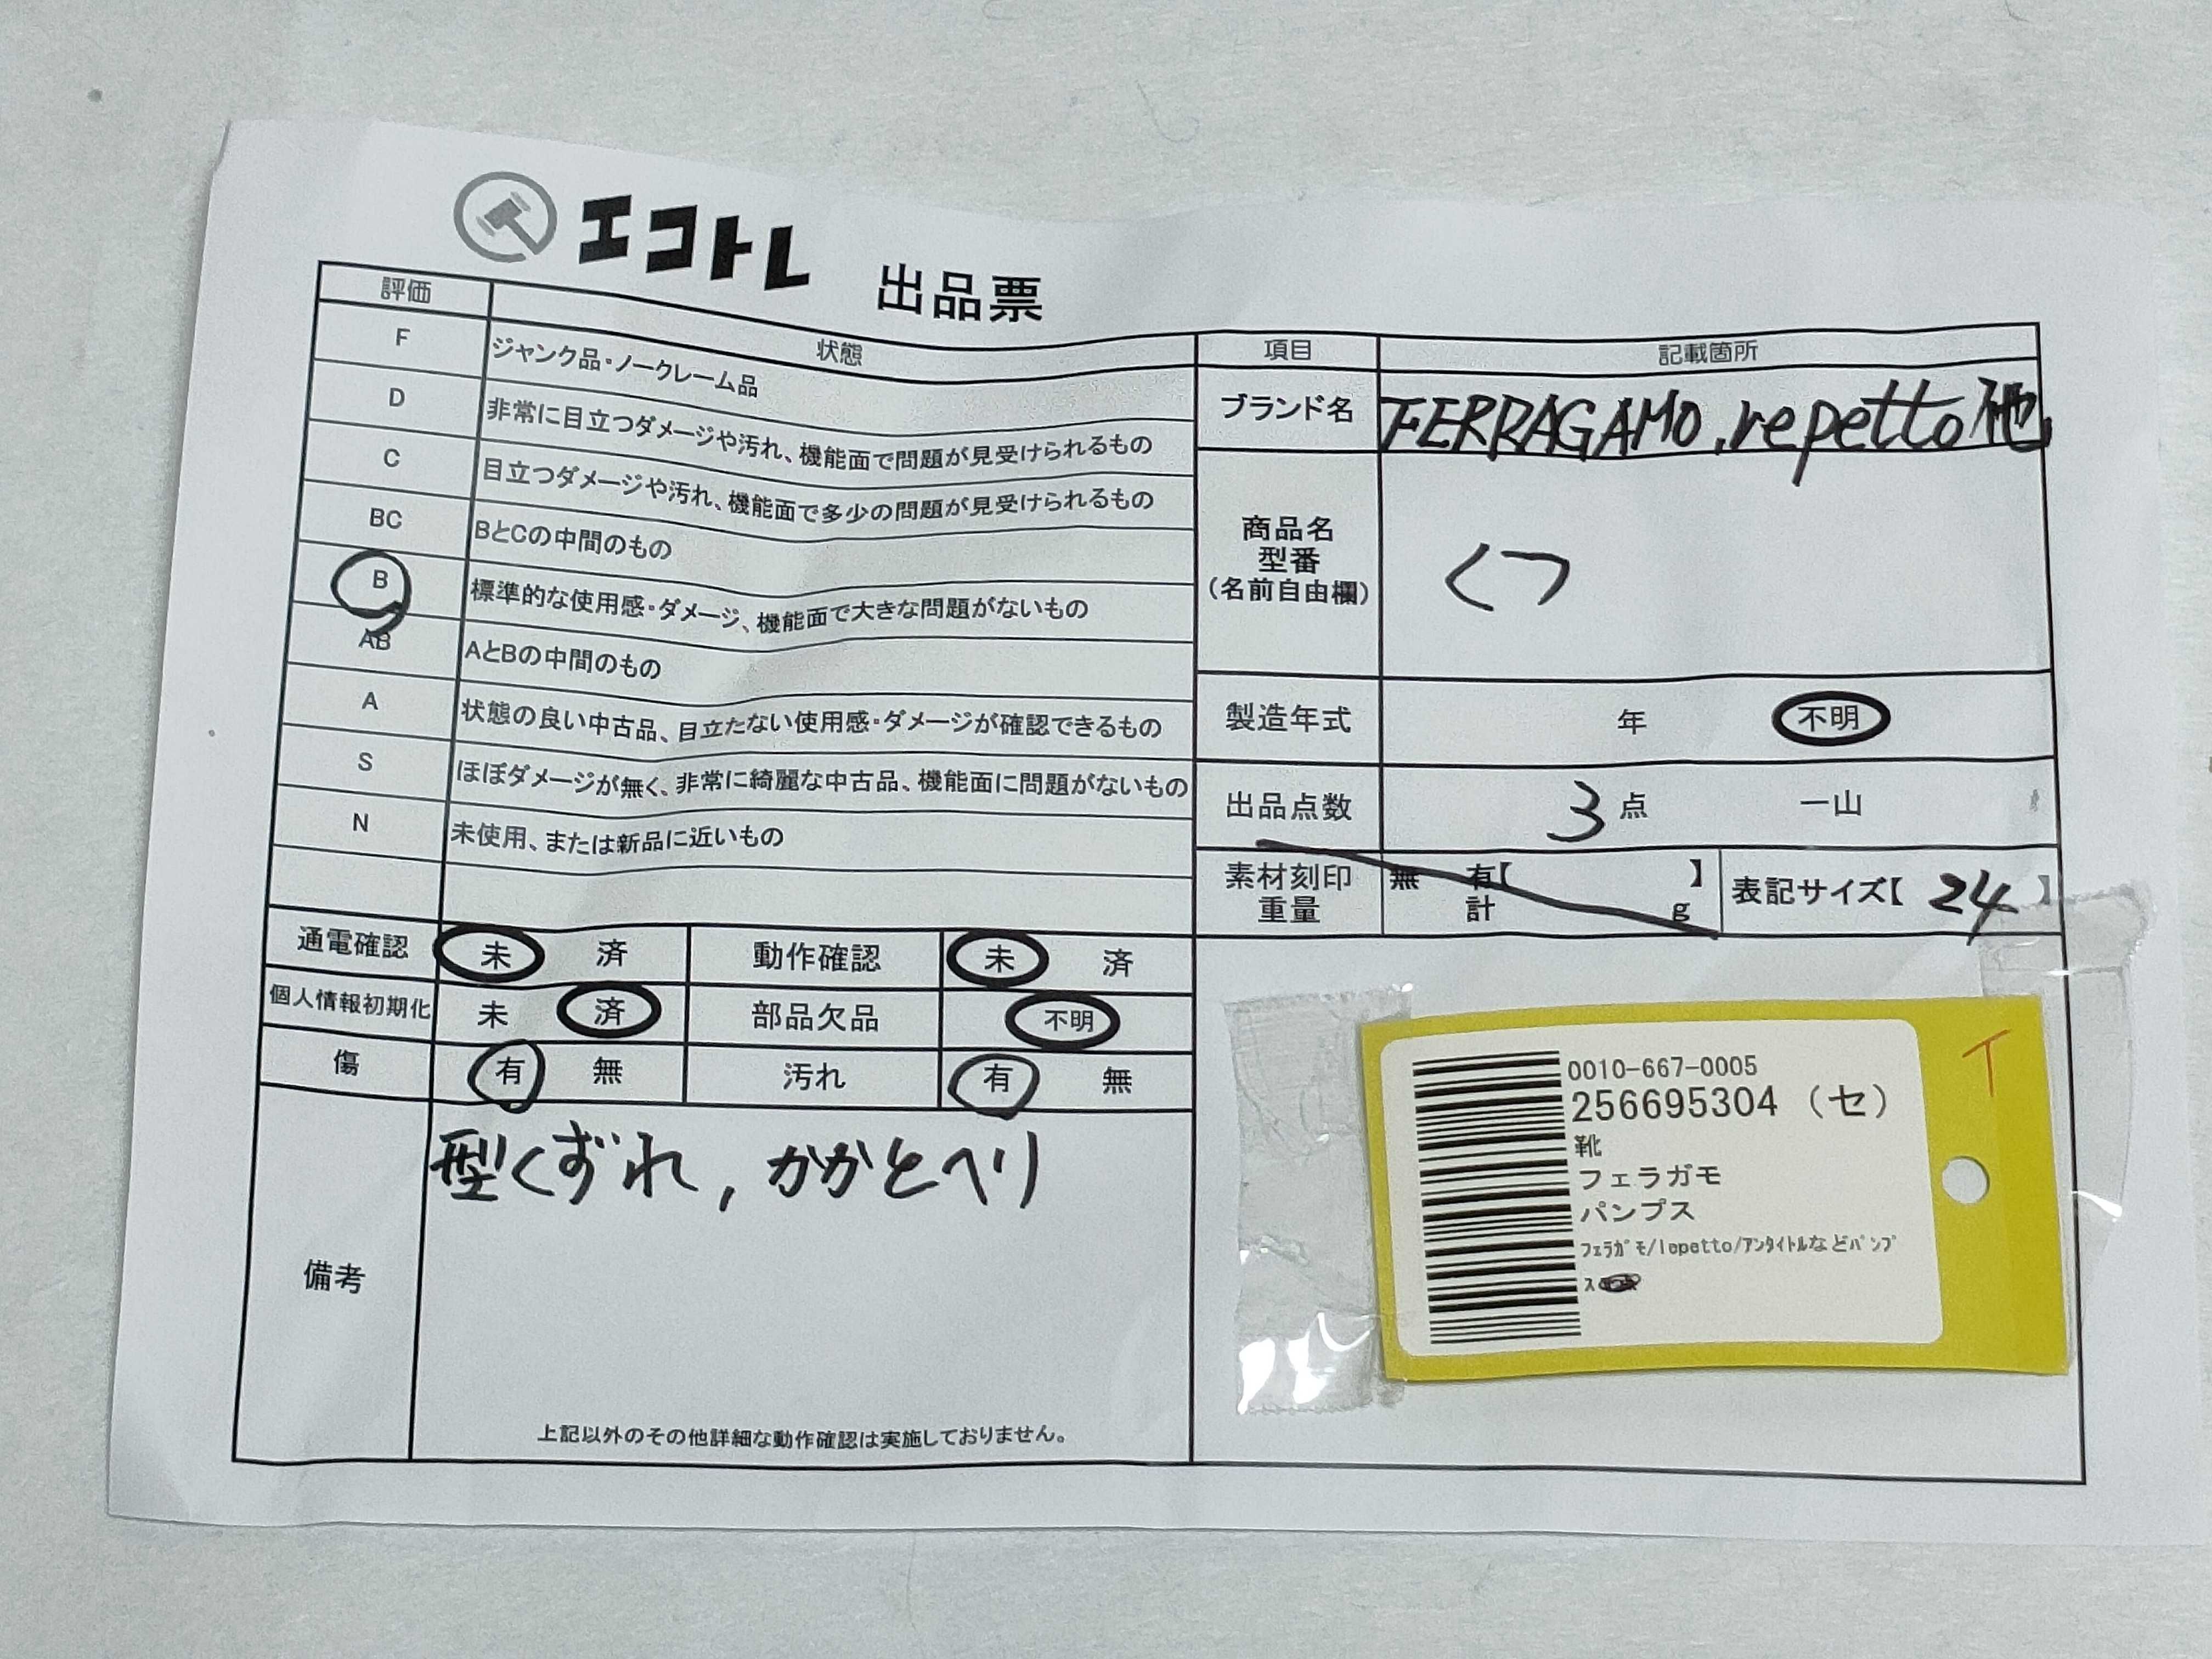 エコトレ 出品票
評価 状態
F ジャンク品・ノークレーム品
D 非常に目立つダメージや汚れ、機能面で問題が見受けられるもの
C 目立つダメージや汚れ、機能面で多少の問題が見受けられるもの
BC BとCの中間のもの
B 標準的な使用感・ダメージ、機能面で大きな問題がないもの
AB AとBの中間のもの
A 状態の良い中古品、目立たない使用感・ダメージが確認できるもの
S ほぼダメージが無く、非常に綺麗な中古品、機能面に問題がないもの
N 未使用、または新品に近いもの
通電確認 未 済 動作確認 未 済
個人情報初期化 未 済 部品欠品 不明
傷 有 無 汚れ 有 無
備考
型くずれ,かかとヘリ
上記以外のその他詳細な動作確認は実施しておりません。
項目 記載箇所
ブランド名 FERRAGAMO.repetto他
商品名
型番
(名前自由欄)
くつ
製造年式 年 不明
出品点数 3点 一山
素材刻印 無 有【 】
重量 計 g
表記サイズ【 24 】
T
0010-667-0005
256695304 (セ)
靴
フェラガモ
パンプス
ﾌｪﾗｶﾞﾓ/lepetto/ｱﾝﾀｲﾄﾙなどﾊﾟﾝﾌﾟ
ｽ